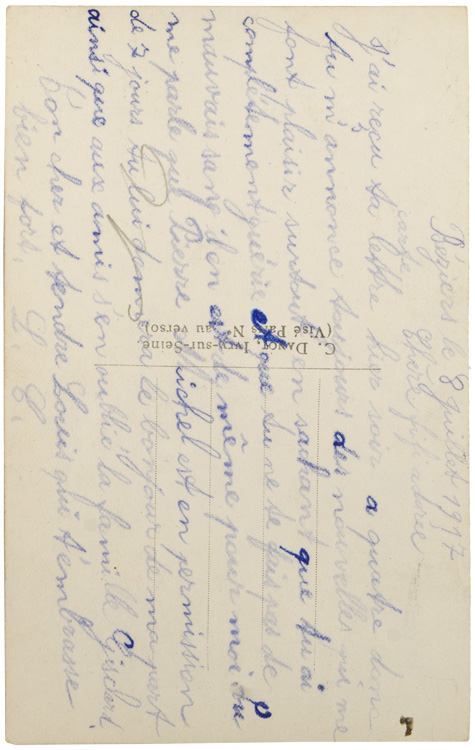 Béziers le 8 Juillet 1917
Chère pp adorée
J'ai reçu ta lettre hier soir a quatre donc
carte
tu m'annonce toujours des nouvelles qui me
font plaisir surtout en sachant que tu ai
complètement guérie et que tu ne te fais pas de
mauvais sang il en est de même pour moi tu
me parle que Pierre Michel est en permission
de 7 jours tu lui donnera le bonjour de ma part
ainsi que aux amis s'en oublié la famille
Ton cher et tendre Louis qui t'embrasse
bien fort.
L. C.
C. Danot, Ivry-sur-Seine.
(Visé Paris N° au verso)